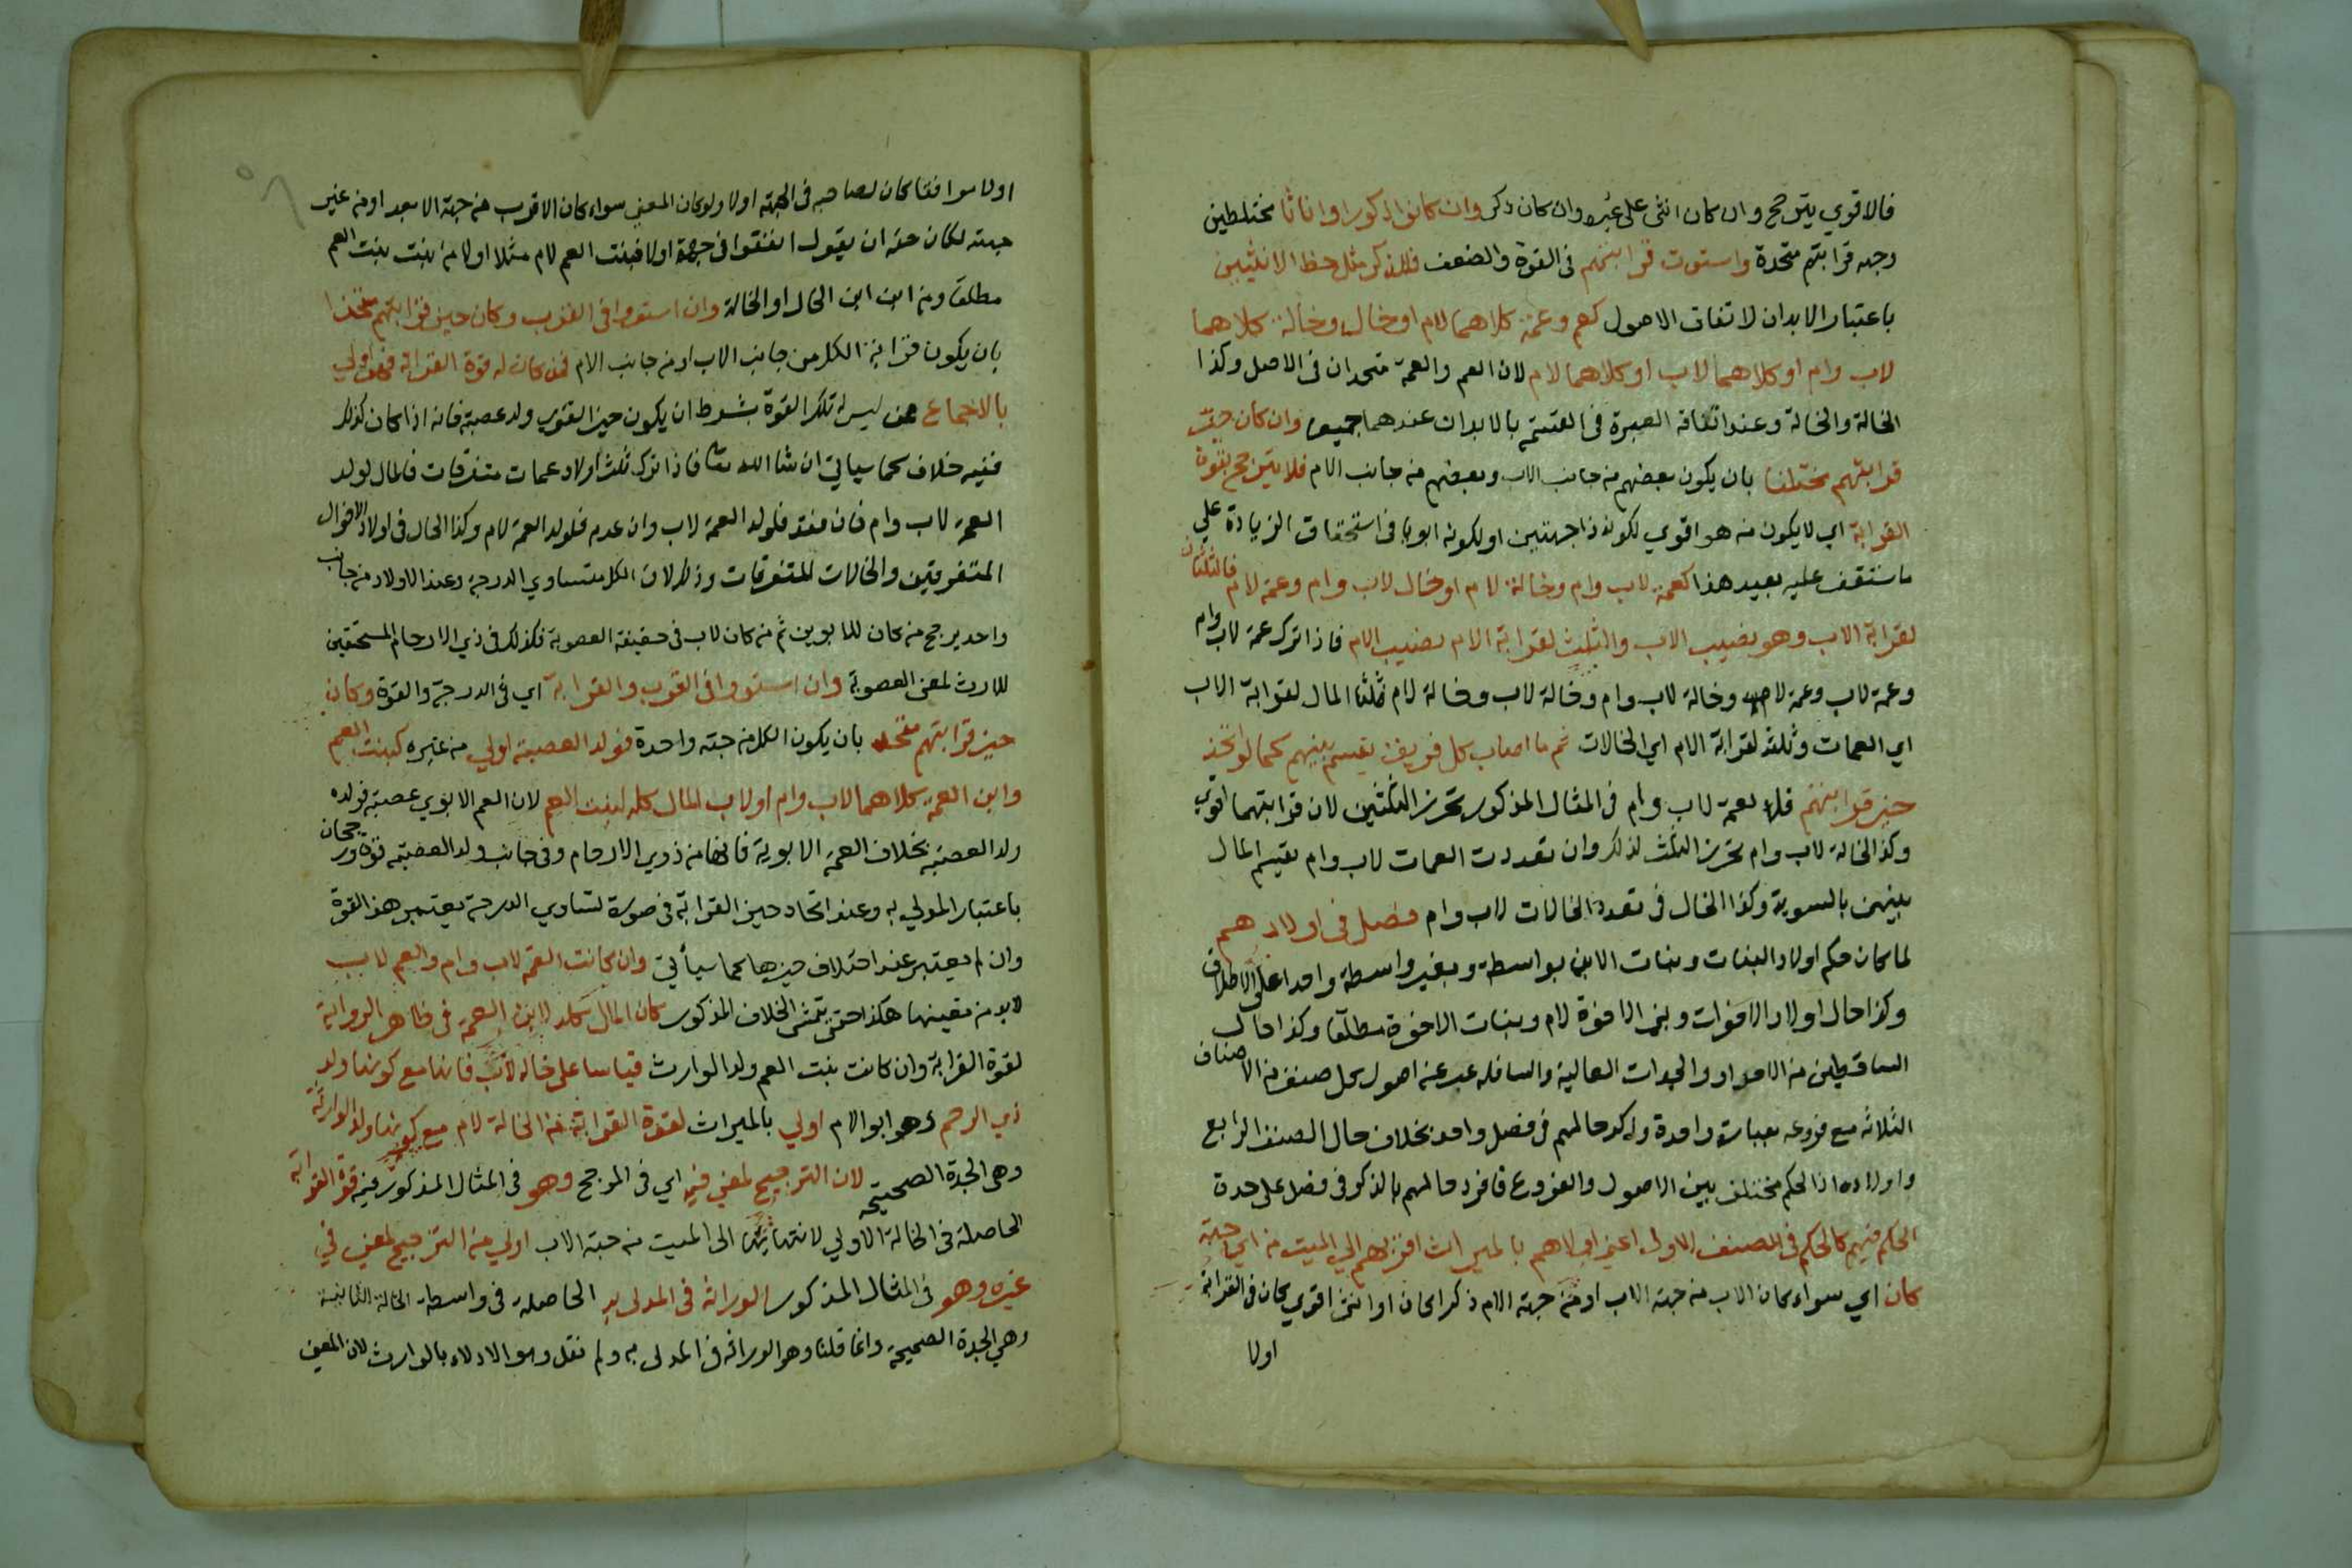 فالاقوي يترجح وان كان انثى على غيره وان كان ذكر وان كانوا ذكورا واناثا مختلطين
وجهه قرابتهم متحدة واستوت قرابتهم في القوة والضعف فللذكر مثل حظ الانثيين
باعتبار الابدان لاتفاق الاصول كعم وعمة كلاهما لام او خال وخالة كلاهما
لاب وام او كلاهما لاب او كلاهما لام لان العم والعمة متحدان في الاصل وكذا
الخالة والخالة وعند اتفاقه العبرة في القسم بالابدان عندهما جميعا وان كان حيز
قرابتهم مختلفا بان يكون بعضهم من جانب الاب وبعضهم من جانب الام فلا يترجح بقوة
القرابة اي لا يكون من هو اقوي لكونه ذا جهتين او لكونه ابويا في استحقاق الزيادة علي
ما ستقف عليه بعيد هذا كعمة لاب وام وخالة لام او خال لاب وام وعمة لام فالثلثان
لقرابة الاب وهو نصيب الاب والثلث لقرابة الام نصيب الام فاذا ترك عمة لاب وام
وعمة لاب وعمة لام وخالة لاب وام وخالة لاب وخالة لام فثلثا المال لقرابة الاب
اي العمات وثلثه لقرابة الام اي الخالات ثم ما اصاب كل فريق يقسم بينهم كما لو اتحد
حيز قرابتهم فلا لعمة لاب وام في المثال المذكور تحرز الثلثين لان قرابتهما اقوي
وكذا الخالة لاب وام تحرز الثلث لذلك وان تعددت العمات لاب وام يقسم المال
بينهن بالسوية وكذا الحال في تعدد الخالات لاب وام فصل في اولادهم
لما كان حكم اولاد البنات وبنات الابن بواسطة وبغير واسطة واحدا على الاطلاق
وكذا حال اولاد الاخوات وبني الاخوة لام وبنات الاخوة مطلقا وكذا حال
الساقطين من الاجداد والجدات العالية والسافله عبر عنه اصول كل صنف من الاصناف
الثلاثة مع فروعه بعبارة واحدة وذكر حالهم في فصل واحد بخلاف حال الصنف الرابع
واولاده اذ الحكم مختلف بين الاصول والفروع فافرد حالهم بالذكر في فصل على حدة
الحكم فيهم كالحكم في الصنف الاول اعني اولاهم بالميراث اقربهم الي الميت من اي جهة
كان اي سواء كان الاب من جهة الاب او من جهة الام ذكرا كان او انثى اقوي كان في القرابة
اولا
اولا موافقا كان لصاحبه في الجهة اولا ولو كان المعني سواء كان الاقرب من جهة الابعد او من غير
جهته لكان حقه ان يقول اتفقوا في جهة اولا فبنت العم لام مثلا اولا من بنت بنت العم
مطلقا ومن ابن ابن الخال او الخالة وان استووا في القرب وكان حيز قرابتهم متحدا
بان يكون قرابة الكل من جانب الاب او من جانب الام فمن كان له قوة القرابة فهو اولي
بالاجماع ممن ليس له تلك القوة بشرط ان يكون حيز القوي ولد عصبة فانه اذا كان كذلك
ففيه خلاف كما سيأتي ان شا الله تعا فاذا ترك ثلث اولاد عمات متفرقات فالمال لولد
العمة لاب وام فان فقد فلولد العمة لاب وان عدم فلولد العمة لام وكذا الحال في اولاد الاخوال
المتفرقين والخالات المتفرقات وذلك لان الكل متساوي الدرجة وعند الاولاد من جانب
واحد يرجح من كان للابوين ثم من كان لاب في حقيقة العصوبة فكذلك في ذي الارحام المستحقين
للارث لمعنى العصوبة وان استووا في القرب والقرابة اي في الدرجة والقوة وكان
حيز قرابتهم متحدا بان يكون الكل من جهة واحدة فولد العصبة اولي من غيره كبنت العم
وابن العمة كلاهما لاب وام او لاب المال كله لبنت العم لان العم الابوي عصبة فولده
ولد العصبة بخلاف العمة الابوية فانها من ذوي الارحام وفي جانب ولد العصبة قوة ورجحان
باعتبار المدلي به وعند اتحاد حيز القرابة في صورة تساوي الدرجة يعتبر هذا القوة
وان لم يعتبر عند اختلاف حيزها كما سيأتي وان كانت العمة لاب وام والعم لاب
لابد من تعينها هكذا حتى يتمشى الخلاف المذكور كان المال كله لابن العمة في ظاهر الرواية
لقوة القرابة وان كانت بنت العم ولد الوارث قياسا على خالة لاب فانها مع كونها ولد
ذي الرحم وهو ابو الام اولي بالميراث لقوة القرابة من الخالة لام مع كونها ولد الوارثة
وهي الجدة الصحيحة لان الترجيح لمعني فيه اي في المرجح وهو في المثال المذكور فيه قوة القرابة
الحاصلة في الخالة الاولي لانتهائها الى الميت من جهة الاب اولي من الترجيح لمعني في
غيره وهو في المثال المذكور الوراثة في المدلى به الحاصلة في واسطة الخالة الثانية
وهي الجدة الصحيحة وانما قلنا وهو الوراثة في المدلى به ولم نقل وهو الادلاء بالوارث لان المعني